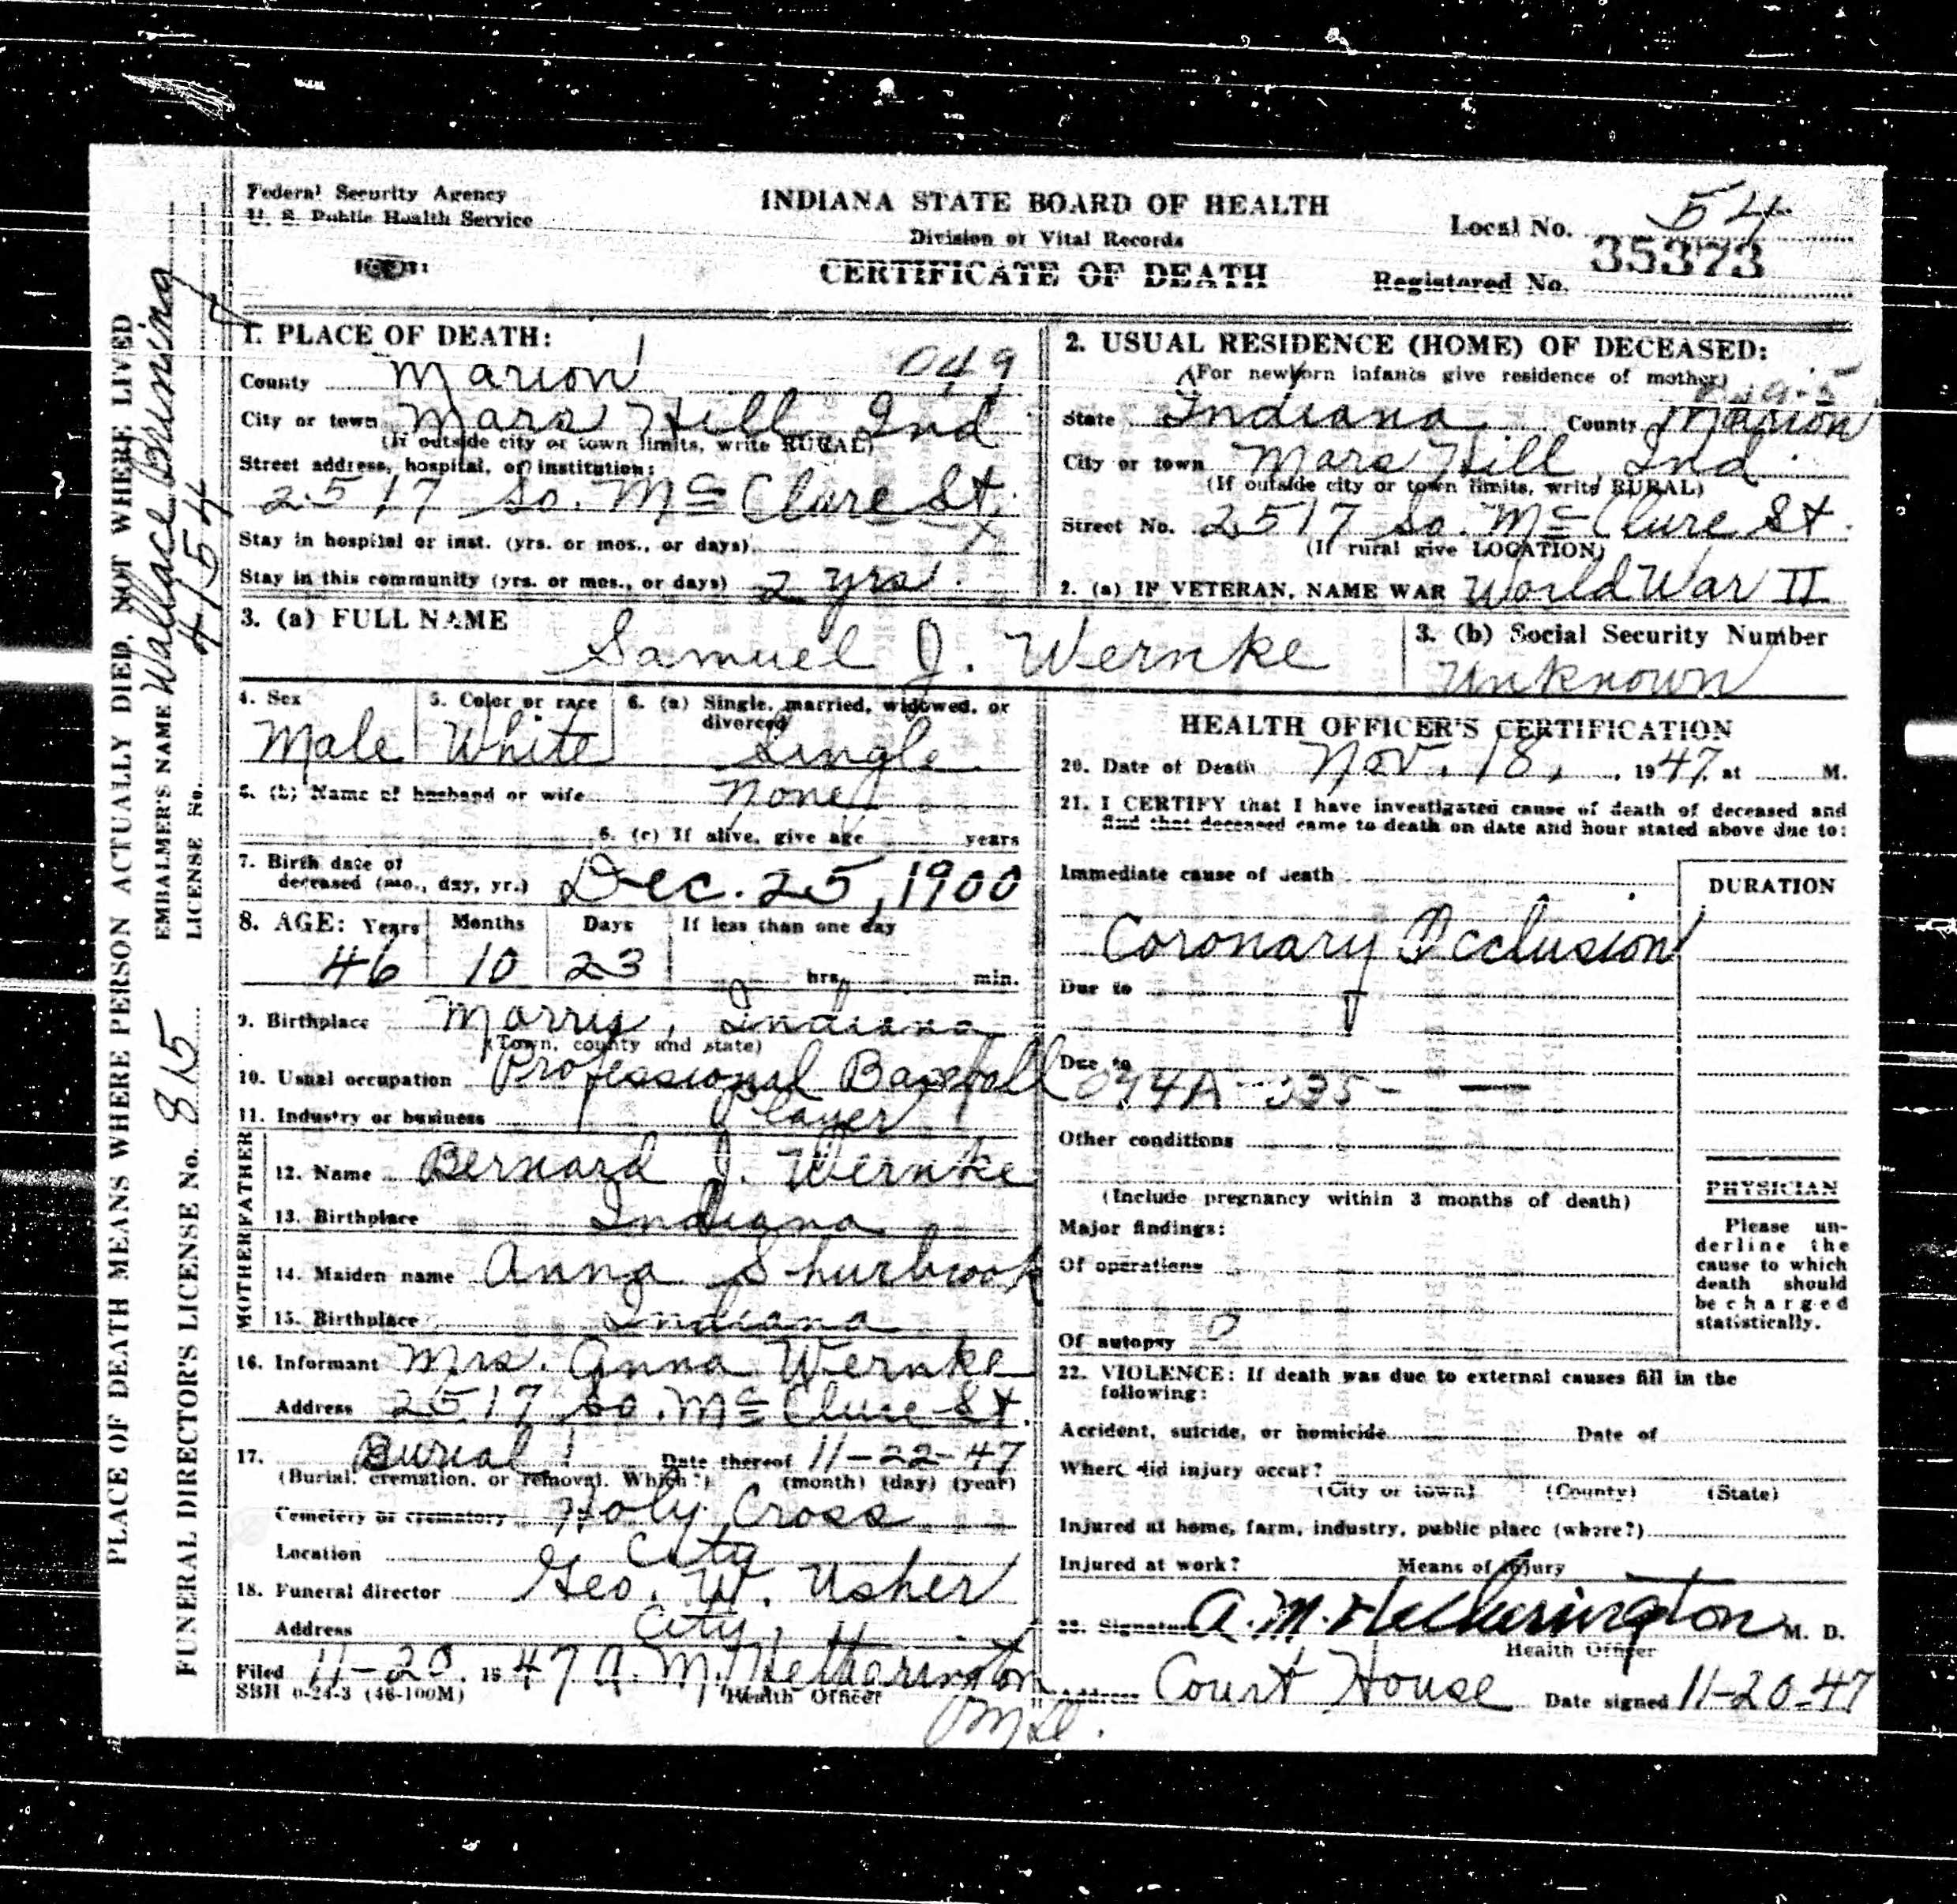 Federal Security Agency
U. S. Public Health Service
INDIANA STATE BOARD OF HEALTH
Division of Vital Records
CERTIFICATE OF DEATH
Local No. 54
Registered No. 35373
PLACE OF DEATH MEANS WHERE PERSON ACTUALLY DIED, NOT WHERE LIVED
EMBALMER'S NAME Wallace Bruning
LICENSE No. 4754
FUNERAL DIRECTOR'S LICENSE No. 815
1. PLACE OF DEATH:
049
County Marion
City or town Mars Hill, Ind
(If outside city or town limits, write RURAL)
Street address, hospital, or institution:
2517 So. McClure St.
Stay in hospital or inst. (yrs. or mos., or days) X
Stay in this community (yrs. or mos., or days) 2 yrs.
2. USUAL RESIDENCE (HOME) OF DECEASED:
(For newborn infants give residence of mother)
State Indiana County Marion
City or town Mars Hill, Ind
(If outside city or town limits, write RURAL)
Street No. 2517 So. McClure St.
(If rural give LOCATION)
2. (a) IF VETERAN, NAME WAR World War II
3. (a) FULL NAME
Samuel J. Wernke
3. (b) Social Security Number
Unknown
4. Sex
Male
5. Color or race
White
6. (a) Single, married, widowed, or divorced
Single
6. (b) Name of husband or wife None
6. (c) If alive, give age years
7. Birth date of
deceased (mo., day, yr.) Dec. 25, 1900
8. AGE: Years Months Days If less than one day
46 10 23 hrs. min.
9. Birthplace Morris, Indiana
(Town, county and state)
10. Usual occupation Professional Baseball
11. Industry or business Player
FATHER
12. Name Bernard J. Wernke
13. Birthplace Indiana
MOTHER
14. Maiden name Anna Shurbrook
15. Birthplace Indiana
16. Informant Mrs. Anna Wernke
Address 2517 So. McClure St.
17. Burial Date thereof 11-22-47
(Burial, cremation, or removal. Which?) (month) (day) (year)
Cemetery or crematory Holy Cross
Location City
18. Funeral director Geo. W. Usher
Address City
Filed 11-20, 1947 A. M. Hetherington
SBH 6-24-3 (46-100M) Health Officer
M.D.
HEALTH OFFICER'S CERTIFICATION
20. Date of Death Nov. 18, 1947 at M.
21. I CERTIFY that I have investigated cause of death of deceased and
find that deceased came to death on date and hour stated above due to:
Immediate cause of death
DURATION
Coronary Occlusion
Due to
Due to
Other conditions
(Include pregnancy within 3 months of death)
Major findings:
Of operations
Of autopsy 0
PHYSICIAN
Please un-
derline the
cause to which
death should
be charged
statistically.
22. VIOLENCE: If death was due to external causes fill in the
following:
Accident, suicide, or homicide Date of
Where did injury occur?
(City or town) (County) (State)
Injured at home, farm, industry, public place (where?)
Injured at work? Means of injury
23. Signature A. M. Hetherington M. D.
Health Officer
Address Court House Date signed 11-20-47